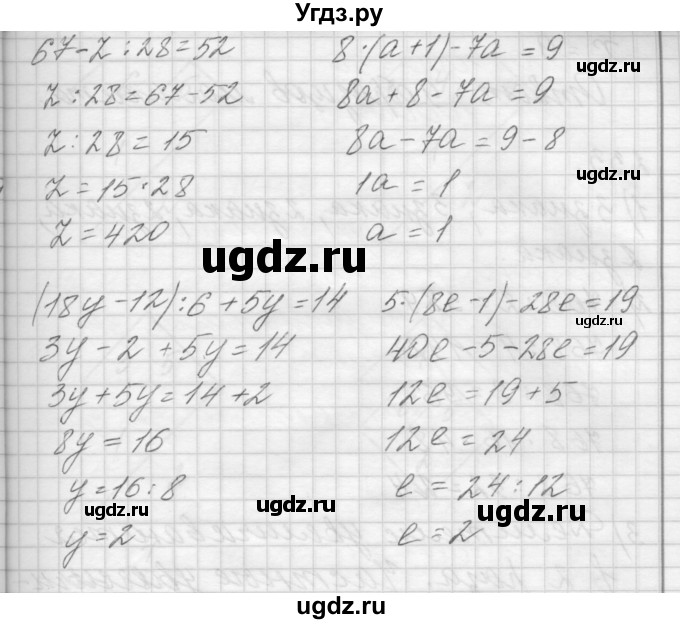 Угдз.ру
67-z:28=52
z:28=67-52
z:28=15
z=15·28
z=420
8·(a+1)-7a=9
8a+8-7a=9
8a-7a=9-8
1a=1
a=1
ugdz.ru
ugdz.ru
ugdz.ru
(18y-12):6+5y=14
3y-2+5y=14
3y+5y=14+2
8y=16
y=16:8
y=2
5·(8e-1)-28e=19
40e-5-28e=19
12e=19+5
12e=24
e=24:12
e=2
ugdz.ru
ugdz.ru
ugdz.ru
ugdz.ru